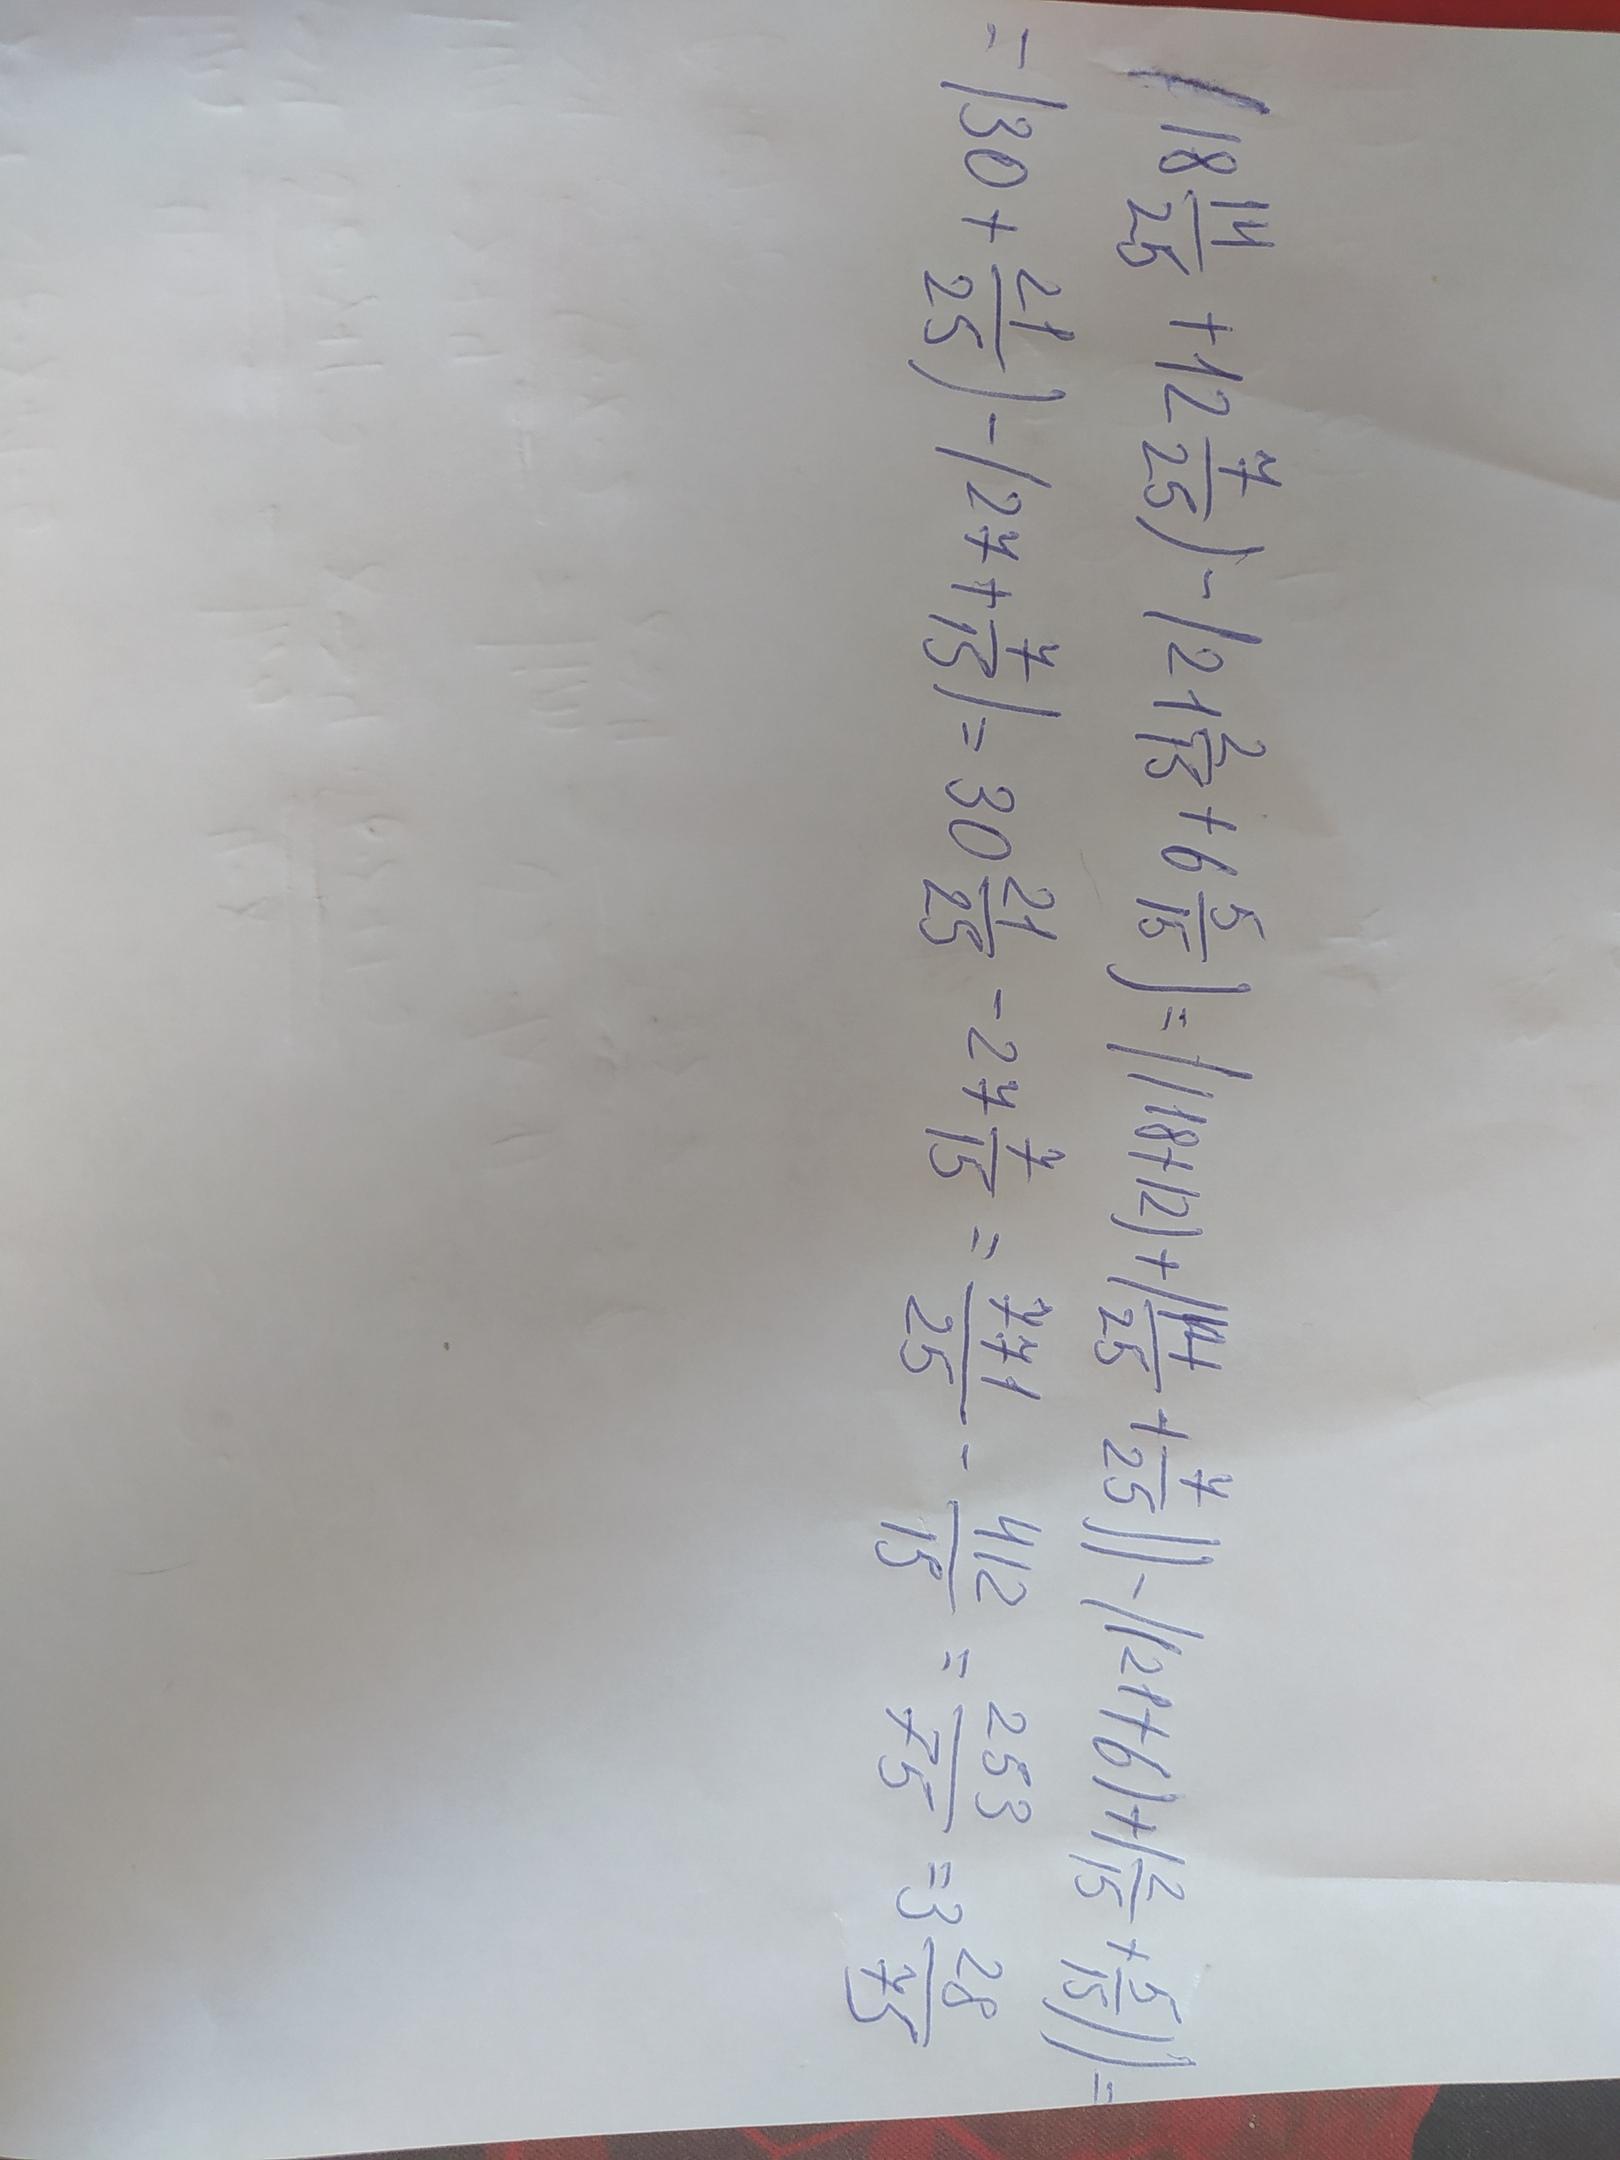 (18 14/25 + 12 7/25) - (21 2/15 + 6 5/15) = ((18+12) + (14/25 + 7/25)) - ((21+6) + (2/15 + 5/15)) =
= (30 + 21/25) - (27 + 7/15) = 30 21/25 - 27 7/15 = 771/25 - 412/15 = 253/75 = 3 28/75